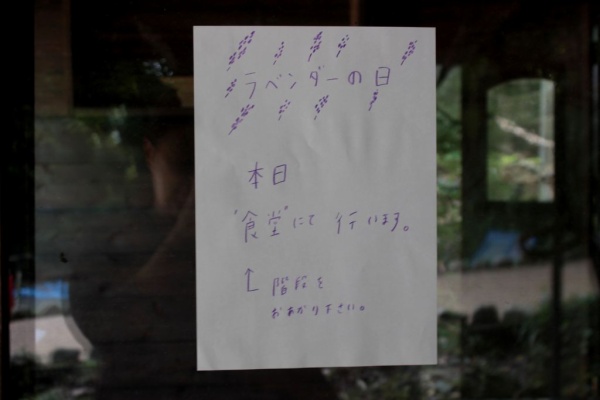 ラベンダーの日
本日
"食堂"にて 行います。
↑ 階段を
おあがり下さい。